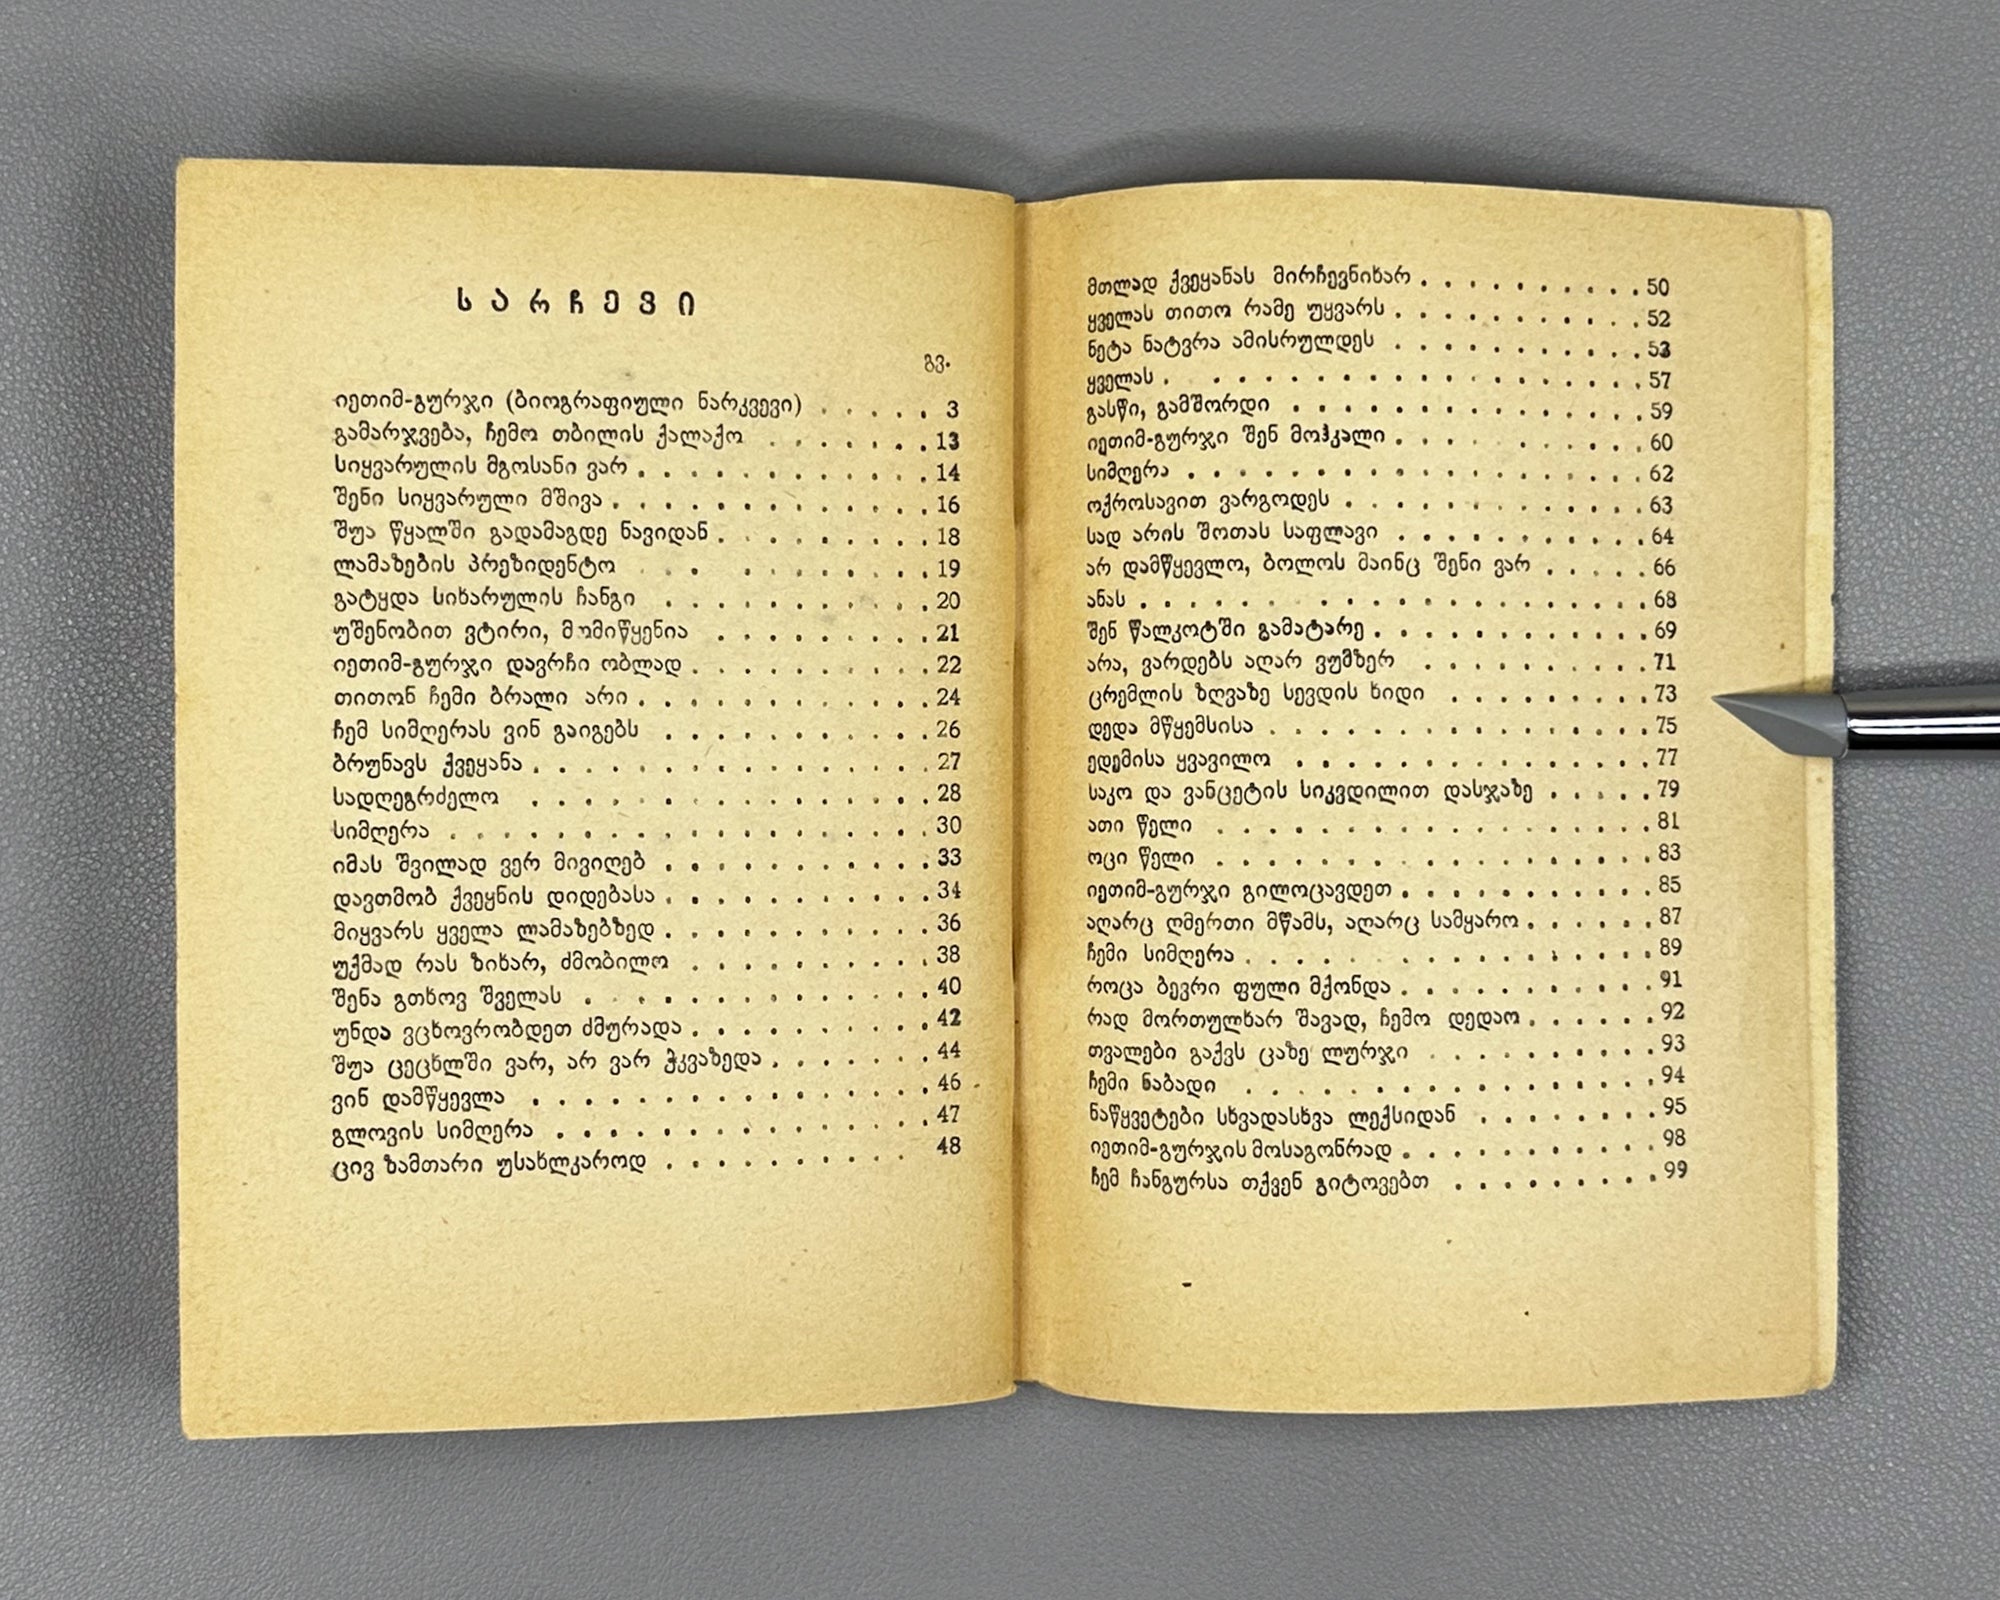 სარჩევი
გვ.
იეთიმ-გურჯი (ბიოგრაფიული ნარკვევი) . . . . . 3
გამარჯვება, ჩემო თბილის ქალაქო . . . . . . . 13
სიყვარულის მგოსანი ვარ . . . . . . . . . . . . 14
შენი სიყვარული მშივა . . . . . . . . . . . . . 16
შუა წყალში გადამაგდე ნავიდან . . . . . . . . . 18
ლამაზების პრეზიდენტო . . . . . . . . . . 19
გატყდა სიხარულის ჩანგი . . . . . . . . . . . 20
უშენობით ვტირი, მომიწყენია . . . . . . . . . 21
იეთიმ-გურჯი დავრჩი ობლად . . . . . . . . . . 22
თითონ ჩემი ბრალი არი . . . . . . . . . . . . 24
ჩემ სიმღერას ვინ გაიგებს . . . . . . . . . . . 26
ბრუნავს ქვეყანა . . . . . . . . . . . . . . . . 27
სადღეგრძელო . . . . . . . . . . . . . . . . 28
სიმღერა . . . . . . . . . . . . . . . . . . . 30
იმას შვილად ვერ მივიღებ . . . . . . . . . . . 33
დავთმობ ქვეყნის დიდებასა . . . . . . . . . . . 34
მიყვარს ყველა ლამაზებზედ . . . . . . . . . . . 36
უქმად რას ზიხარ, ძმობილო . . . . . . . . . . 38
შენა გთხოვ შველას . . . . . . . . . . . . . . 40
უნდა ვცხოვრობდეთ ძმურადა . . . . . . . . . . 42
შუა ცეცხლში ვარ, არ ვარ ჭკვაზედა . . . . . . . 44
ვინ დამწყევლა . . . . . . . . . . . . . . . . 46
გლოვის სიმღერა . . . . . . . . . . . . . . . 47
ცივ ზამთარი უსახლკაროდ . . . . . . . . . . 48
მთლად ქვეყანას მირჩევნიხარ . . . . . . . . . . 50
ყველას თითო რამე უყვარს . . . . . . . . . . . 52
ნეტა ნატვრა ამისრულდეს . . . . . . . . . . . 53
ყველას . . . . . . . . . . . . . . . . . . . 57
გასწი, გამშორდი . . . . . . . . . . . . . . . 59
იეთიმ-გურჯი შენ მოჰკალი . . . . . . . . . . . 60
სიმღერა . . . . . . . . . . . . . . . . . . . 62
ოქროსავით ვარგოდეს . . . . . . . . . . . . . 63
სად არის შოთას საფლავი . . . . . . . . . . . 64
არ დამწყევლო, ბოლოს მაინც შენი ვარ . . . . . 66
ანას . . . . . . . . . . . . . . . . . . . . 68
შენ წალკოტში გამატარე . . . . . . . . . . . . 69
არა, ვარდებს აღარ ვუმზერ . . . . . . . . . . 71
ცრემლის ზღვაზე სევდის ხიდი . . . . . . . . . 73
დედა მწყემსისა . . . . . . . . . . . . . . . . 75
ედემისა ყვავილო . . . . . . . . . . . . . . . 77
საკო და ვანცეტის სიკვდილით დასჯაზე . . . . . 79
ათი წელი . . . . . . . . . . . . . . . . . . 81
ოცი წელი . . . . . . . . . . . . . . . . . . 83
იეთიმ-გურჯი გილოცავდეთ . . . . . . . . . . . 85
აღარც ღმერთი მწამს, აღარც სამყარო . . . . . . 87
ჩემი სიმღერა . . . . . . . . . . . . . . . . . 89
როცა ბევრი ფული მქონდა . . . . . . . . . . . 91
რად მორთულხარ შავად, ჩემო დედაო . . . . . . 92
თვალები გაქვს ცაზე ლურჯი . . . . . . . . . . 93
ჩემი ნაბადი . . . . . . . . . . . . . . . . . 94
ნაწყვეტები სხვადასხვა ლექსიდან . . . . . . . . 95
იეთიმ-გურჯის მოსაგონრად . . . . . . . . . . . 98
ჩემ ჩანგურსა თქვენ გიტოვებთ . . . . . . . . . 99